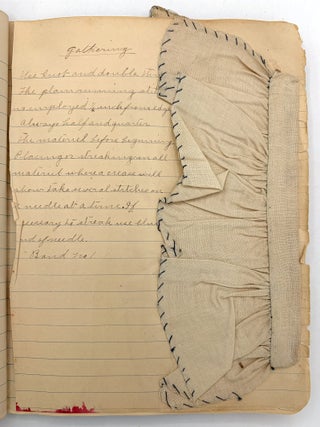 Gathering
Use knot and double sti
The plain running stit
is employed ¼ inch from edge
Always half and quarter
The materiel before beginning
Placing or streaking small
materiel where a crease will
show take several stitches on
needle at a time. If
cessary to streak use blun
nd of needle.
Band No 1